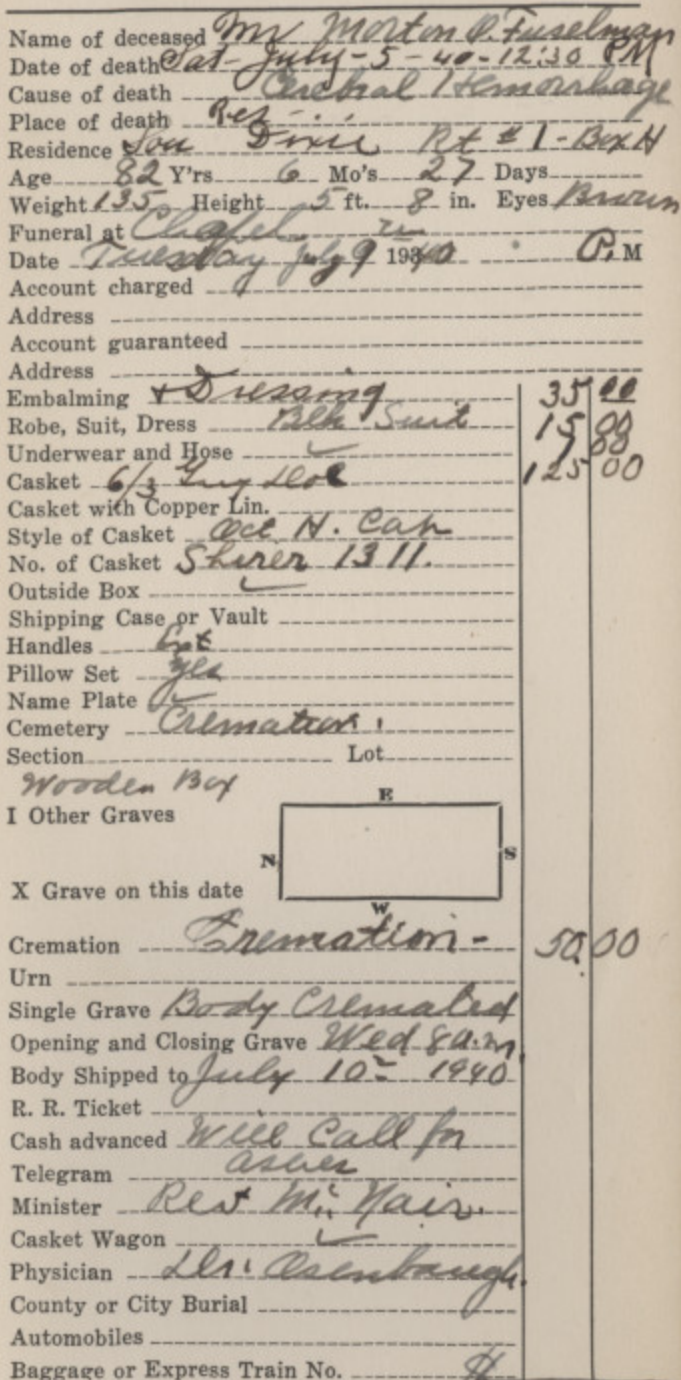 Name of deceased Mr Morton P. Fuselman
Date of death Sat - July - 5 - 40 - 12:30 PM
Cause of death Cerebral Hemorrhage
Place of death Res.
Residence Son Dixie Rt # 1 - Box H
Age 82 Y'rs 6 Mo's 27 Days
Weight 135 Height 5 ft. 8 in. Eyes Brown
Funeral at Chapel
Date Tuesday July 9 1940 P. M
Account charged
Address
Account guaranteed
Address
Embalming + Dressing 35 00
Robe, Suit, Dress Blk Suit 15 00
Underwear and Hose ✓ 1 00
Casket 6/3 Grey 125 00
Casket with Copper Lin.
Style of Casket Oct H. Cap
No. of Casket Shirer 1311.
Outside Box ✓
Shipping Case or Vault
Handles Ext
Pillow Set yes
Name Plate ✓
Cemetery Cremation.
Section Lot
Wooden Box
I Other Graves
E
N S
X Grave on this date
W
Cremation Cremation - 50 00
Urn
Single Grave Body Cremated
Opening and Closing Grave Wed 8 a.m.
Body Shipped to July 10 1940
R. R. Ticket
Cash advanced Will Call for
Telegram ashes
Minister Rev Mc Nair.
Casket Wagon ✓
Physician Dr. Osenbaugh.
County or City Burial
Automobiles
Baggage or Express Train No.